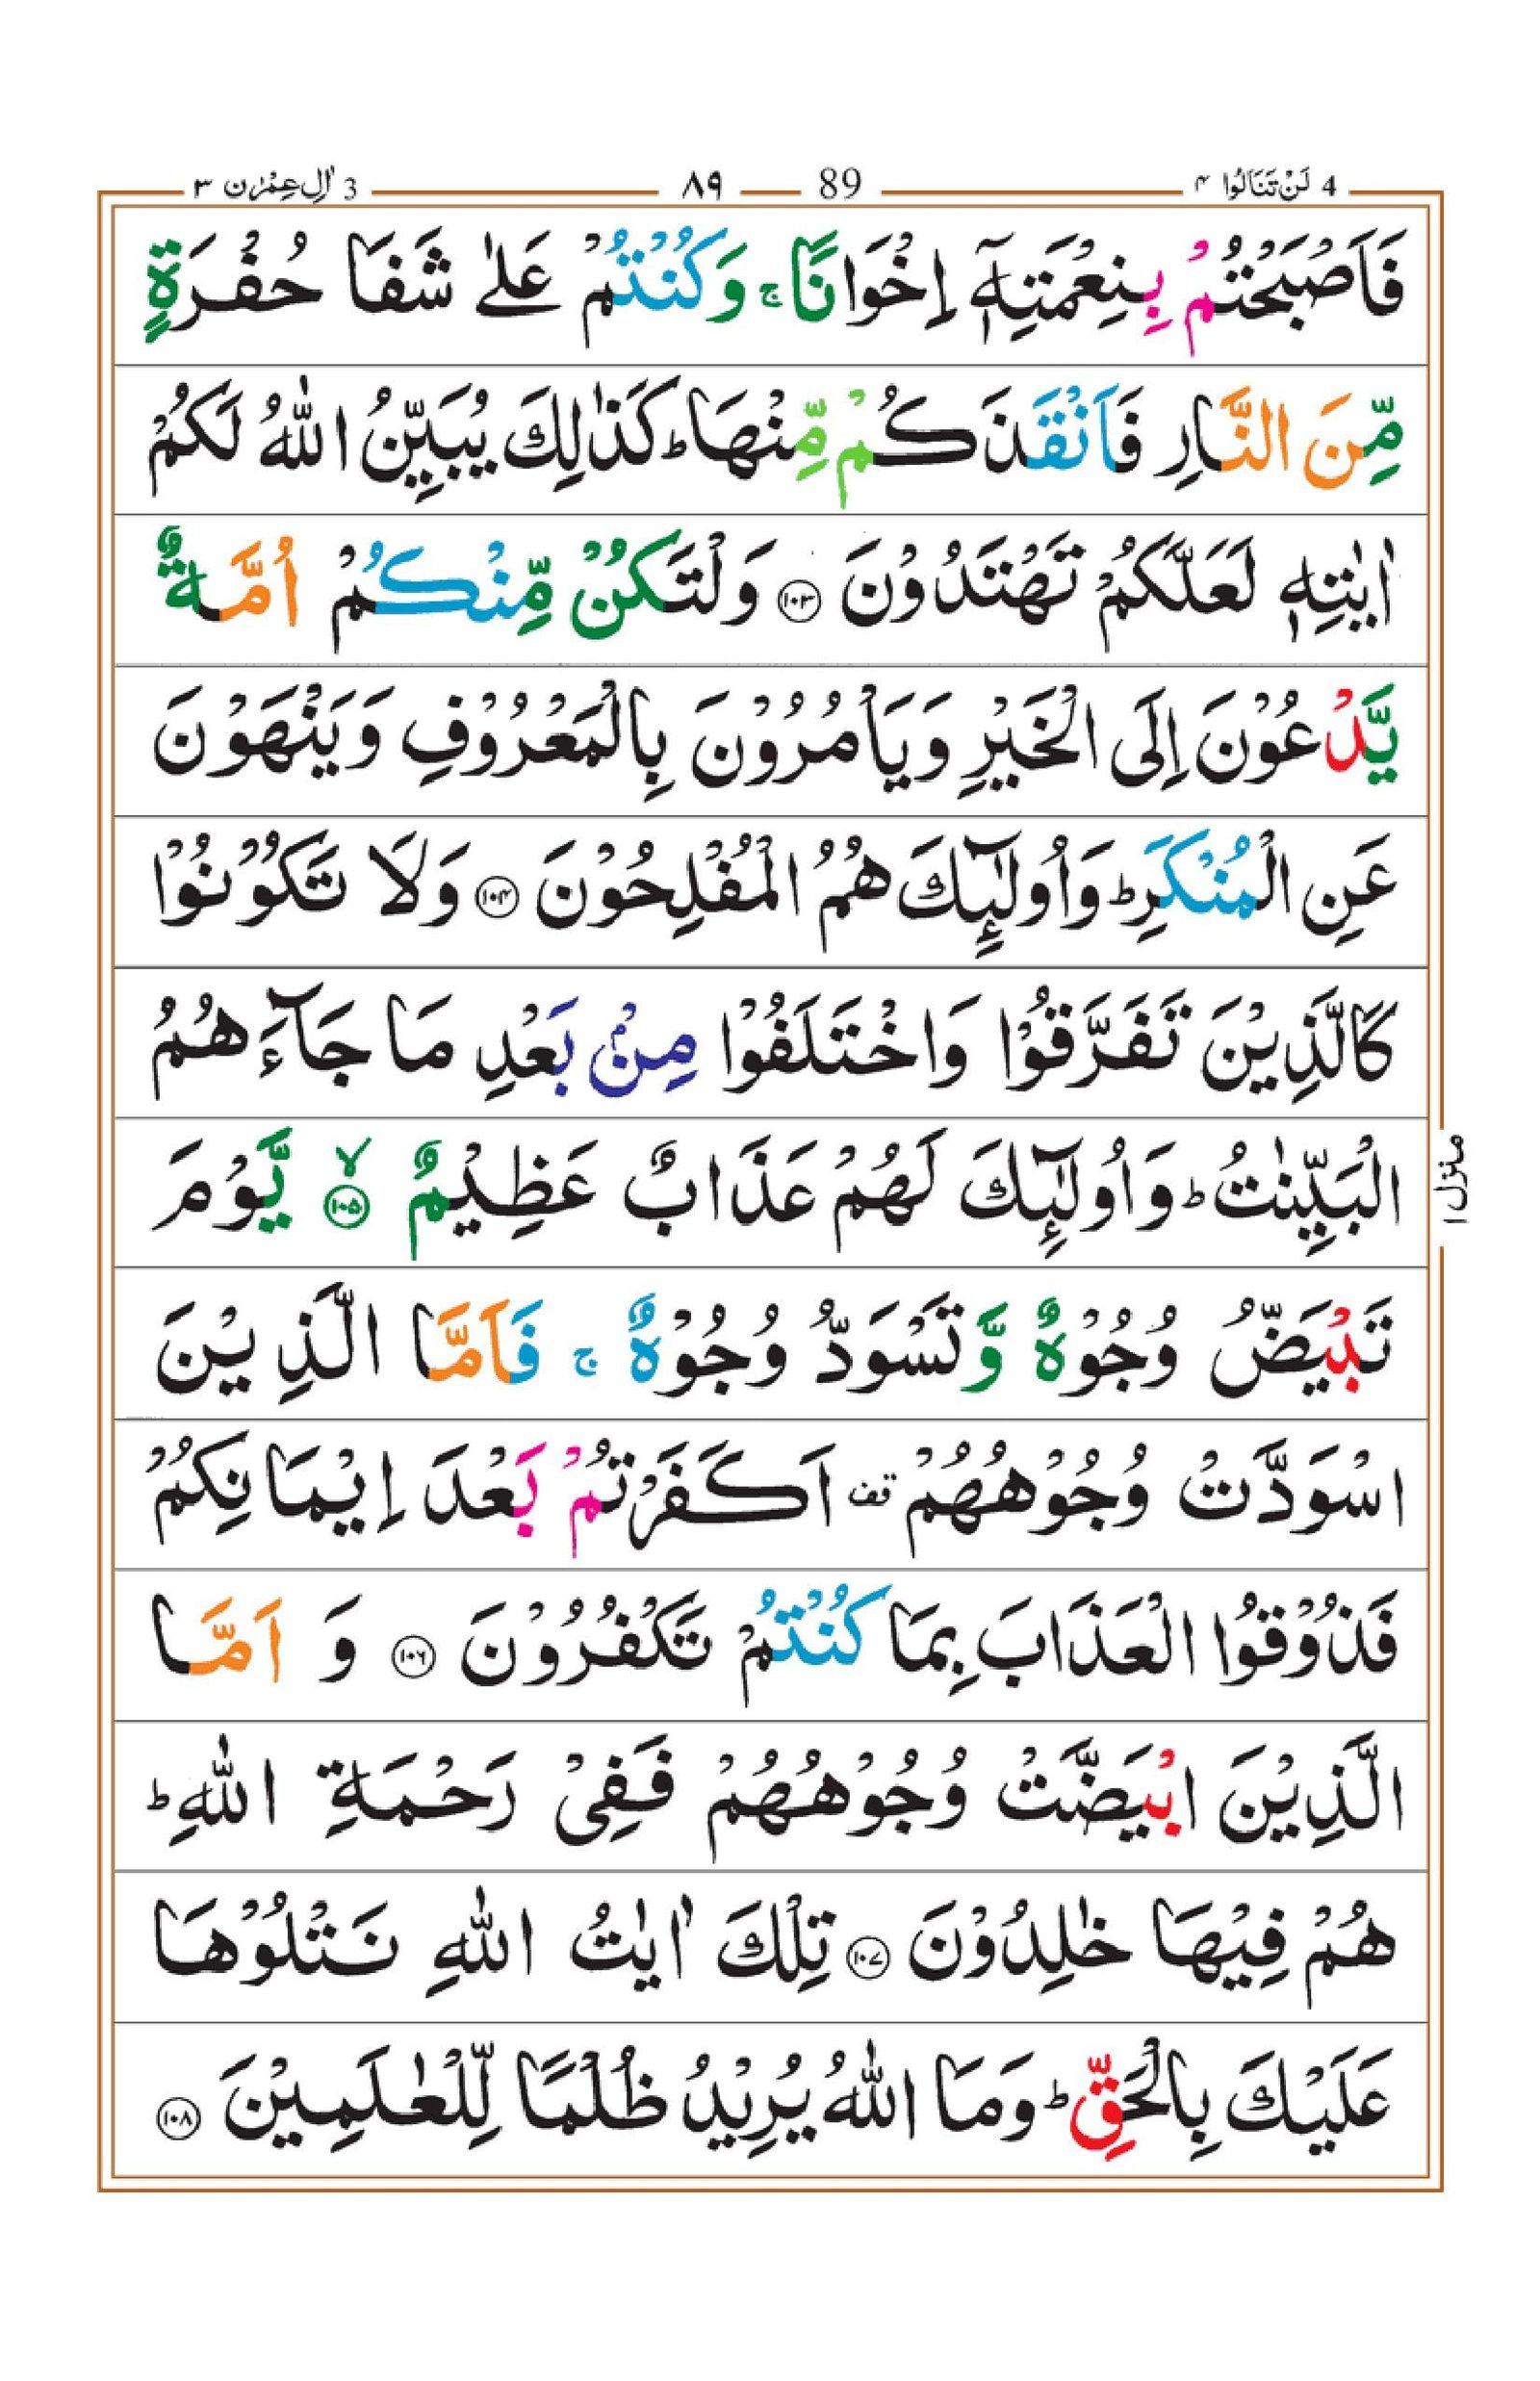 4 لَنْ تَنَالُوا ۴ 89 ۸۹ 3 اٰلِ عِمْرٰن ۳
فَاَصْبَحْتُمْ بِنِعْمَتِهٖۤ اِخْوَانًا ۚ وَكُنْتُمْ عَلٰى شَفَا حُفْرَةٍ
مِّنَ النَّارِ فَاَنْقَذَكُمْ مِّنْهَا ؕ كَذٰلِكَ يُبَيِّنُ اللّٰهُ لَكُمْ
اٰيٰتِهٖ لَعَلَّكُمْ تَهْتَدُوْنَ ۝۱۰۳ وَلْتَكُنْ مِّنْكُمْ اُمَّةٌ
يَّدْعُوْنَ اِلَى الْخَيْرِ وَيَاْمُرُوْنَ بِالْمَعْرُوْفِ وَيَنْهَوْنَ
عَنِ الْمُنْكَرِ ؕ وَاُولٰٓئِكَ هُمُ الْمُفْلِحُوْنَ ۝۱۰۴ وَلَا تَكُوْنُوْا
كَالَّذِيْنَ تَفَرَّقُوْا وَاخْتَلَفُوْا مِنْۢ بَعْدِ مَا جَآءَهُمُ
الْبَيِّنٰتُ ؕ وَاُولٰٓئِكَ لَهُمْ عَذَابٌ عَظِيْمٌ ۝۱۰۵ ۙ يَّوْمَ
تَبْيَضُّ وُجُوْهٌ وَّتَسْوَدُّ وُجُوْهٌ ۚ فَاَمَّا الَّذِيْنَ
اسْوَدَّتْ وُجُوْهُهُمْ قف اَكَفَرْتُمْ بَعْدَ اِيْمَانِكُمْ
فَذُوْقُوا الْعَذَابَ بِمَا كُنْتُمْ تَكْفُرُوْنَ ۝۱۰۶ وَ اَمَّا
الَّذِيْنَ ابْيَضَّتْ وُجُوْهُهُمْ فَفِيْ رَحْمَةِ اللّٰهِ ؕ
هُمْ فِيْهَا خٰلِدُوْنَ ۝۱۰۷ تِلْكَ اٰيٰتُ اللّٰهِ نَتْلُوْهَا
عَلَيْكَ بِالْحَقِّ ؕ وَمَا اللّٰهُ يُرِيْدُ ظُلْمًا لِّلْعٰلَمِيْنَ ۝۱۰۸
منزل ۱